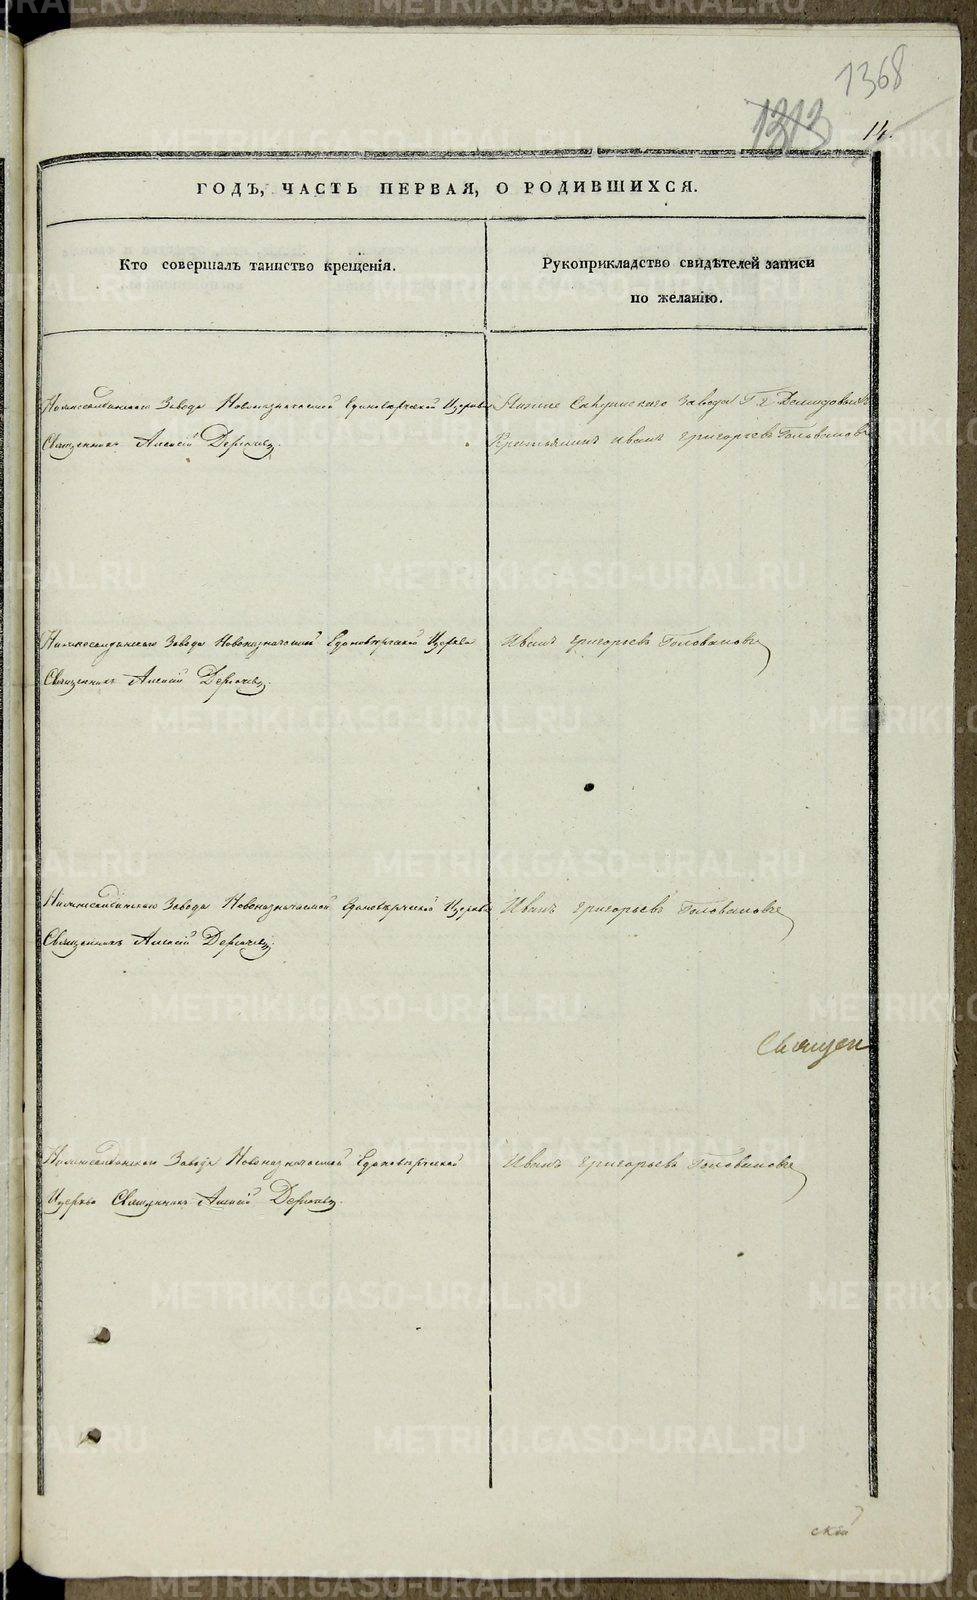 1368
1313
14.
ГОДЪ, ЧАСТЬ ПЕРВАЯ, О РОДИВШИХСЯ.
Кто совершалъ таинство крещенія.
Рукоприкладство свидѣтелей записи
по желанію.
Нижнесалдинскаго Завода Новоназначаемой Единовѣрческой Церкви
Священникъ Алексій
Нижне Салдинскаго Завода Г. Г. Демидовыхъ
Крестьянинъ Иванъ Григорьевъ Головановъ
Нижнесалдинскаго Завода Новоназначаемой Единовѣрческой Церкви
Священникъ Алексій
Иванъ Григорьевъ Головановъ
Нижнесалдинскаго Завода Новоназначаемой Единовѣрческой Церкви
Священникъ Алексій
Иванъ Григорьевъ Головановъ
Священ
Нижнесалдинскаго Завода Новоназначаемой Единовѣрческой
Церкви Священникъ Алексій
Иванъ Григорьевъ Головановъ
METRIKI.GASO-URAL.RU